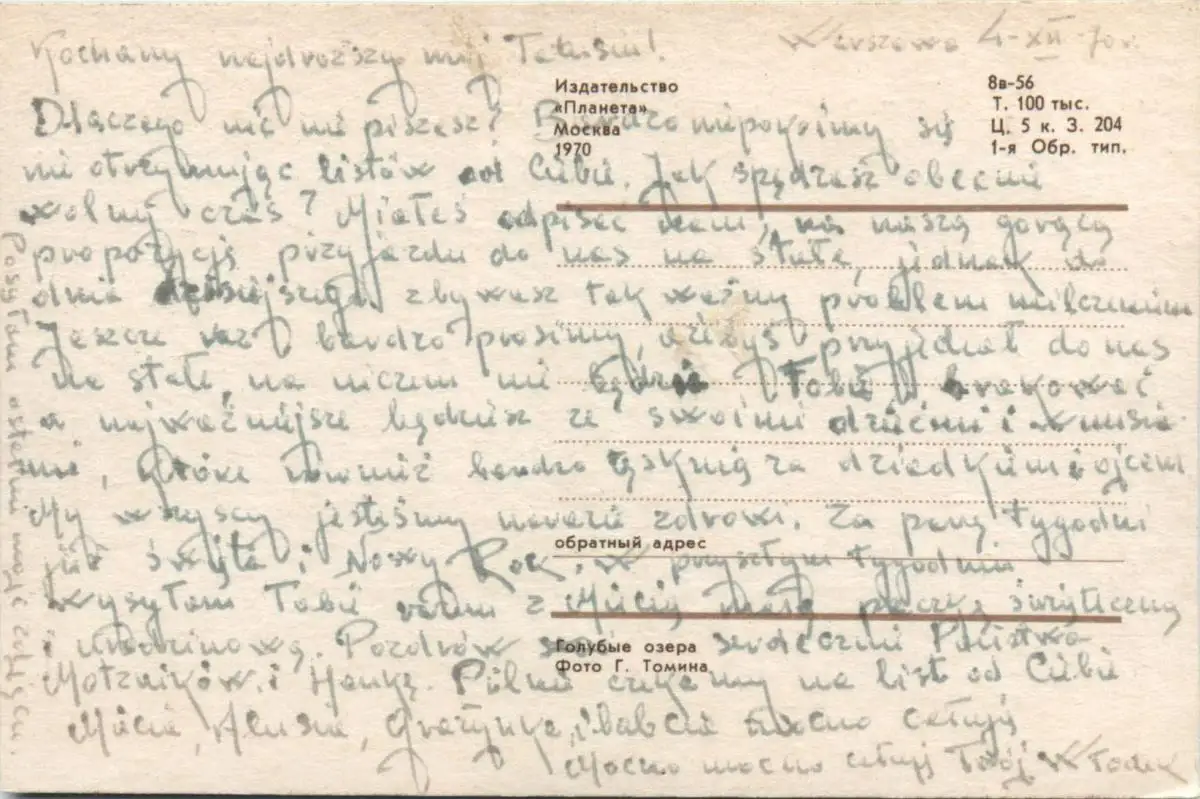 Warszawa 4-XII-70r.
Kochany najdroższy mój Tatusiu!
Dlaczego nic nie piszesz? Bardzo niepokoimy się
nie otrzymując listów od Ciebie. Jak spędzasz obecnie
wolny czas? Miałeś odpisać nam, na naszą gorącą
propozycję przyjazdu do nas na stałe, jednak do
dnia dzisiejszego zbywasz tak ważny problem milczeniem
Jeszcze raz bardzo prosimy, ażebyś przyjechał do nas
na stałe, na niczem nie będzie Tobie brakować
a najważniejsze będziesz ze swoimi dziećmi i wnusia-
mi, które również bardzo tęsknią za dziadkiem i ojcem
My wszyscy jesteśmy narazie zdrowi. Za parę tygodni
już święta i Nowy Rok. w przyszłym tygodniu
wysyłam Tobie razem z Micią małą paczkę świąteczną
i urodzinową. Pozdrów serdecznie Państwa
i Hankę. Pilnie czekamy na list od Ciebie
Micia, Alusia, Grażynka i babcia mocno całują
Mocno mocno całuję Twój Włodek
Posyłam ostatnie moje zdjęcie.
Издательство
«Планета»
Москва
1970
8в-56
Т. 100 тыс.
Ц. 5 к. З. 204
1-я Обр. тип.
обратный адрес
Голубые озера
Фото Г. Томина